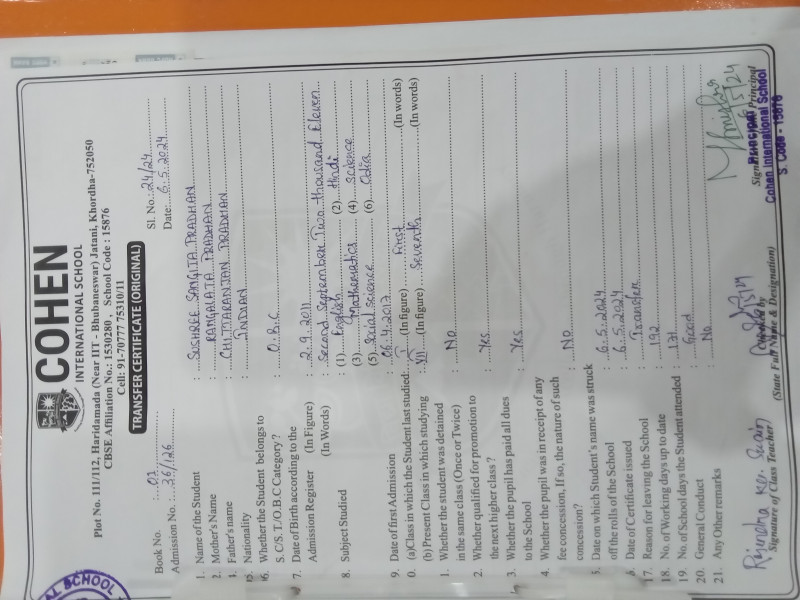 COHEN
INTERNATIONAL SCHOOL
Plot No. 111/112, Haridamada (Near IIT - Bhubaneswar) Jatani, Khordha-752050
CBSE Affiliation No.: 1530280 , School Code : 15876
Cell: 91-70777 75310/11
TRANSFER CERTIFICATE (ORIGINAL)
Book No. 02 Sl. No.: 24/24
Admission No. : 36/126 Date: 6.5.2024
1. Name of the Student : SUSHREE SANGITA PRADHAN
2. Mother's Name : RANGALATA PRADHAN
Father's name : CHITTARANJAN PRADHAN
Nationality : INDIAN
6. Whether the Student belongs to
S.C/S.T./O.B.C Category? : O.B.C
7. Date of Birth according to the
Admission Register (In Figure) : 2.9.2011
(In Words) : Second September Two thousand Eleven
8. Subject Studied : (1) English (2) Hindi
(3) Mathematics (4) Science
(5) Social science (6) Odia
9. Date of first Admission : 06.4.2017
0. (a)Class in which the Student last studied: I (In figure) First (In words)
(b) Present Class in which studying : VII (In figure) Seventh (In words)
1. Whether the student was detained
in the same class (Once or Twice) : No
2. Whether qualified for promotion to
the next higher class ? : Yes
3. Whether the pupil has paid all dues
to the School : Yes
4. Whether the pupil was in receipt of any
fee concession, If so, the nature of such
concession? : No
5. Date on which Student's name was struck
off the rolls of the School : 6.5.2024
Date of Certificate issued : 6.5.2024
17. Reason for leaving the School : Transfer
18. No. of Working days up to date : 192
19. No. of School days the Student attended : 171
20. General Conduct : Good
21. Any Other remarks : No
Signature of Class Teacher
(State Full Name & Designation)
Principal
Cohen International School
S. Code - 15876
SCHOOL